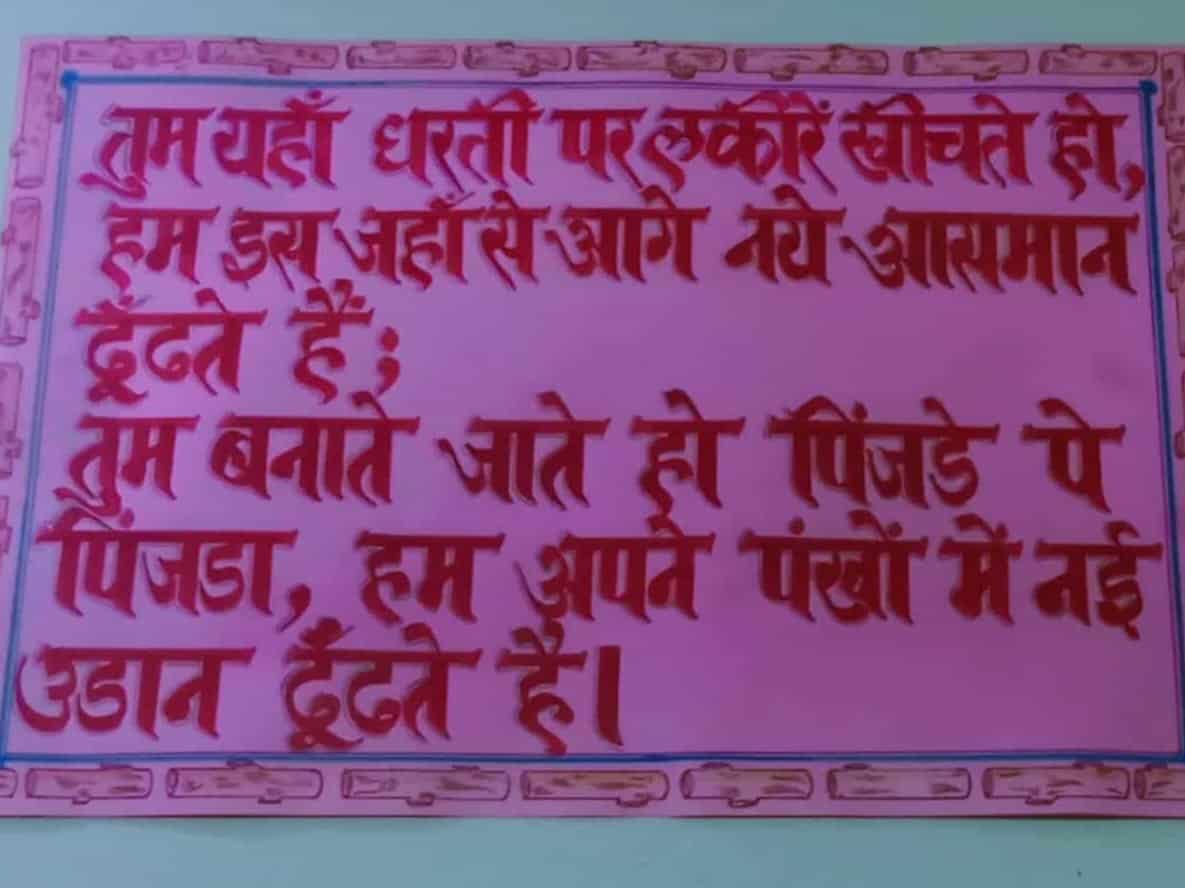 तुम यहाँ धरती पर लकीरें खींचते हो,
हम इस जहाँ से आगे नये आसमान
ढूँढते हैं;
तुम बनाते जाते हो पिंजडे पे
पिंजडा, हम अपने पंखों में नई
उडान ढूँढते है।